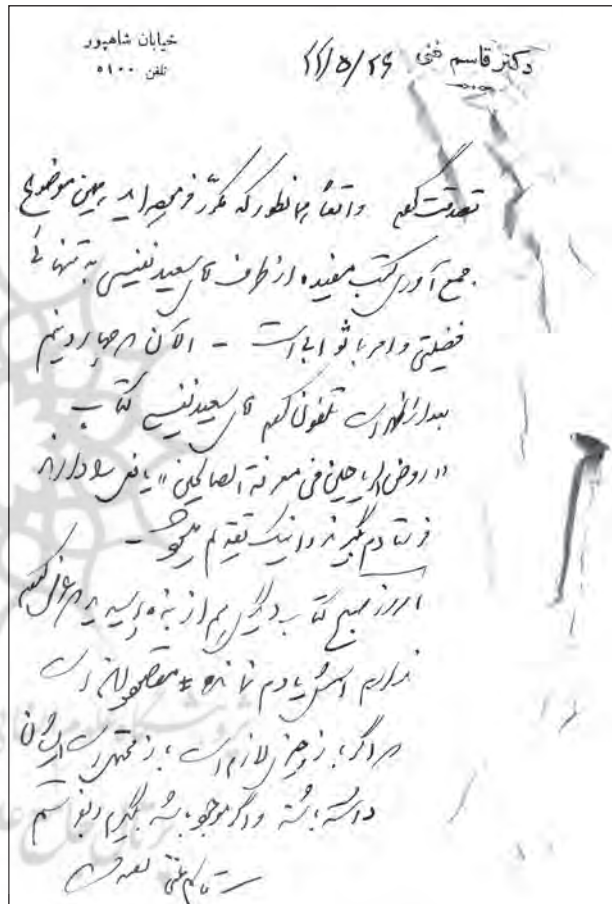 خیابان شاهپور
تلفن ۵۱۰۰
دکتر قاسم غنی
۲۲/۵/۲۶
تصدقت گردم واقعاً همانطور که مکرّر فرموده‌اید همین موضوع
جمع آوری کتب مفیده از طرف آقای سعید نفیسی به تنهائی
فضیلتی و امر با ثوابی است - الآن چهار و نیم
بعد از ظهر است تلفون کردم آقای سعید نفیسی کتاب
«روض الریاحین فی معرفة الصالحین» یافعی را دارند
فرستادم بگیرند و اینک تقدیم میشود -
امروز صبح کتاب دیگری هم از بنده پرسیدید عرض کردم
ندارم اسمش یادم نمانده مقصود است
اگر باز چیزی لازم است از مختصرات ایشان
داشته باشند و اگر موجود باشد بگیرم و بفرستم
قاسم غنی